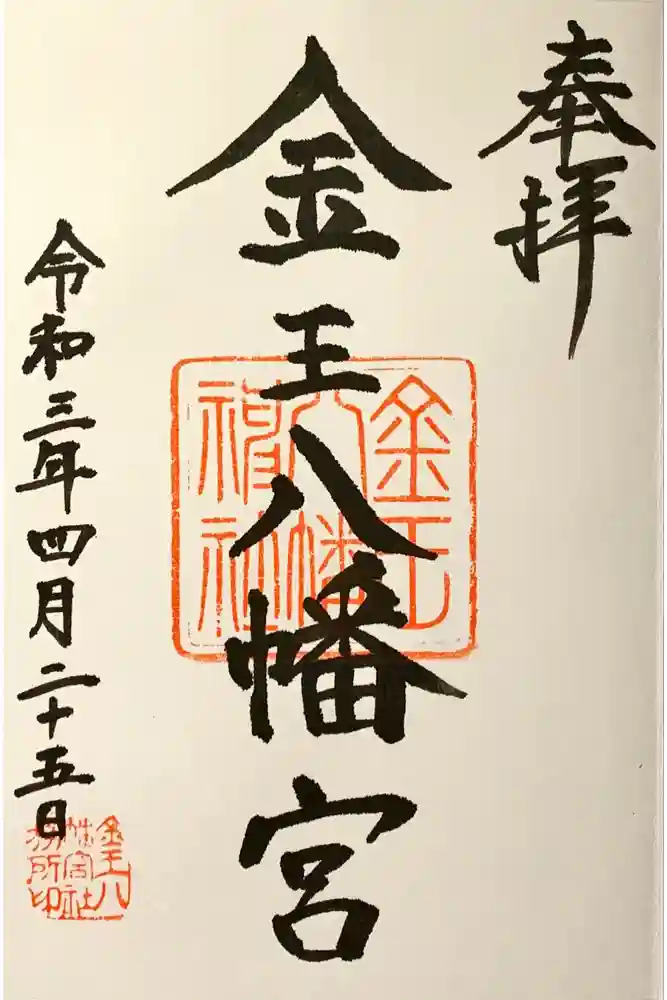 奉拝
金王八幡宮
金王八幡神社
令和三年四月二十五日
金王八幡宮社務所印